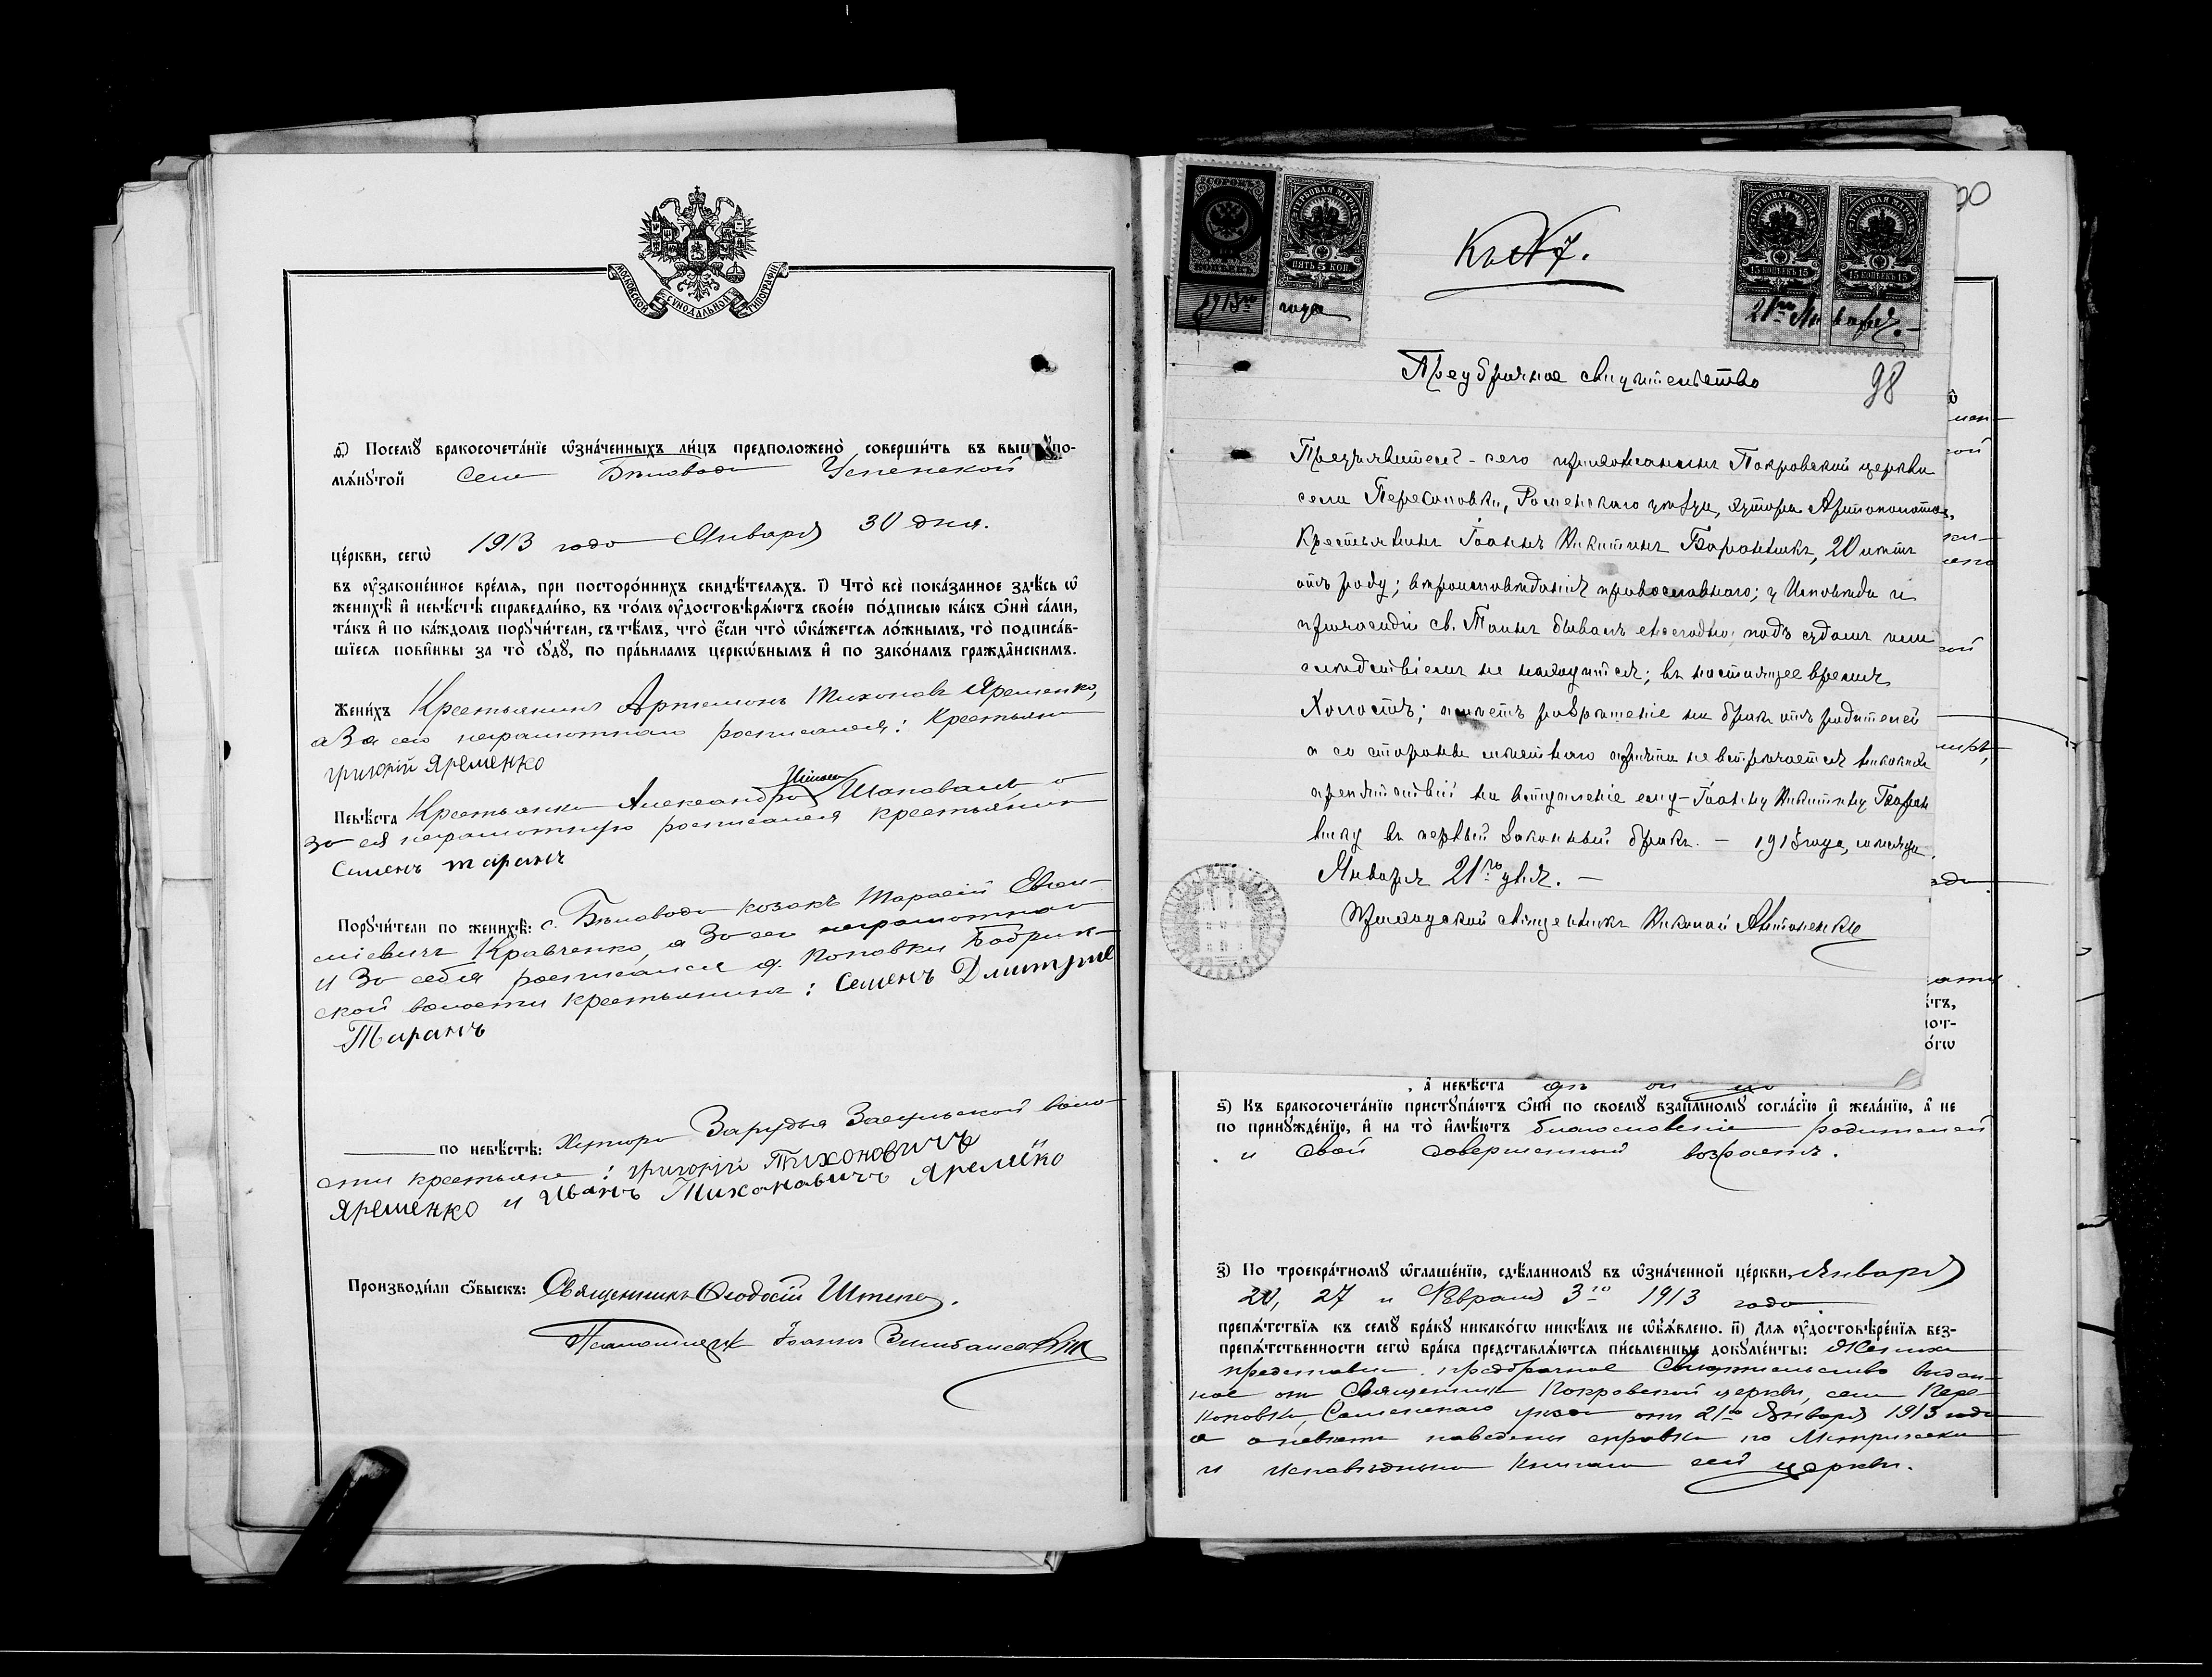 МОСКОВСКОЙ СѴНОДАЛЬНОЙ ТИПОГРАФІИ
ѳ҃) Посемꙋ̀ бракосочета́нїе ѡ҆зна́ченныхъ ли́цъ предположено̀ соверши́ть въ вышепо-
мѧ́нꙋтой селе Бѣловода Успенской
це́ркви, сегѡ̀ 1913 года Января 30 дня.
въ ᲂу҆зако́ненное вре́мѧ, при посторо́ннихъ свидѣ́телѧхъ. і҃) Что̀ всѐ пока́занное здѣ́сь ѡ҆
женихѣ̀ и҆ невѣ́стѣ справедли́во, въ то́мъ ᲂу҆достовѣрѧ́ютъ свое́ю по́дписью ка́къ ѻ҆нѝ са́ми,
та́къ и҆ по ка́ждомъ порꙋчи́тели, съ тѣ́мъ, что̀ є҆́сли что̀ ѡ҆ка́жетсѧ ло́жнымъ, то̀ подписа́в-
шїесѧ пови́нны за то̀ сꙋдꙋ̀, по пра́виламъ церко́внымъ и҆ по зако́намъ гражда́нскимъ.
Жени́хъ Крестьянинъ Артемонъ Тихоновъ Яременко,
а За его неграмотнаго росписался: Крестьянин
григорій Яременко
Невѣ́ста Крестьянка Александра Шаповалова
За ея неграмотную росписался крестьянин
Семенъ таранъ
Порꙋчи́тели по женихѣ̀: с. Бѣловода козакъ Тарасій
Кравченко, а За его неграмотнаго
и За себя росписался д. Коповки Бобрик-
ской волости крестьянинъ: Семенъ Дмитрие
Таранъ
по невѣ́стѣ: Хутора Зарудья Засульской воло
сти крестьяне: григорій Тихоновичъ
Яременко и Иванъ Тихоновичъ Яремёко
Производи́ли ѻ҆́быскъ: Священникъ Ѳеодосій Штепа.
Псаломщикъ Іоаннъ
СОРОКЪ
ГЕРБОВАЯ МАРКА
ПЯТЬ 5 КОП.
1913го года
Къ № 7.
ГЕРБОВАЯ МАРКА ГЕРБОВАЯ МАРКА
15 КОПѢЕКЪ 15 15 КОПѢЕКЪ 15
21го Января.
90
Предбрачное свидѣтельство
98
Предъявитель сего прихожанинъ Покровской церкви
села Перекоповки, Роменскаго уѣзда, хутора
Крестьянинъ Іоаннъ Никитинъ Баранникъ, 20 лѣтъ
отъ роду; вѣроисповѣданія православнаго; у Исповѣди и
причастія св. Таинъ бываетъ ежегодно; подъ судомъ или
слѣдствіемъ не находится; въ настоящее время
Холостъ; имѣетъ разрѣшеніе на бракъ отъ родителей
и со стороны мѣстнаго причта не встрѣчается никакихъ
препятствій на вступленіе ему - Іоанну Никитину Баран
нику въ первый законный бракъ. - 1913 года, месяца
Января 21го дня. -
Приходской священникъ Николай Антоненко
а҆ невѣ́ста
ѕ҃) Къ бракосочета́нїю пристꙋпа́ютъ ѻ҆нѝ по своемꙋ̀ взаи́мномꙋ согла́сїю и҆ жела́нїю, а҆ не
по принꙋжде́нїю, и҆ на то̀ и҆мѣ́ютъ благословеніе родителей
и свой совершенный возрастъ.
з҃) По троекра́тномꙋ ѡ҆глаше́нїю, сдѣ́ланномꙋ въ ѡ҆зна́ченной це́ркви, Января
20, 27 и Февраля 3го 1913 года
препѧ́тствїѧ къ семꙋ̀ бра́кꙋ никако́гѡ никѣ́мъ не ѡ҆б̾ѧ́влено. и҃) Длѧ ᲂу҆достовѣре́нїѧ без-
препѧ́тственности сегѡ̀ бра́ка представлѧ́ютсѧ пи́сьменные докꙋме́нты: Жених
представил предбрачное Свидѣтельство выдан-
ное от Священника Покровской церкви, села Пере-
коповки, Роменскаго уѣзда отъ 21го Января 1913 года
а о невѣстѣ наведены справки по Метрически
и исповѣдным Книгам сей церкви.